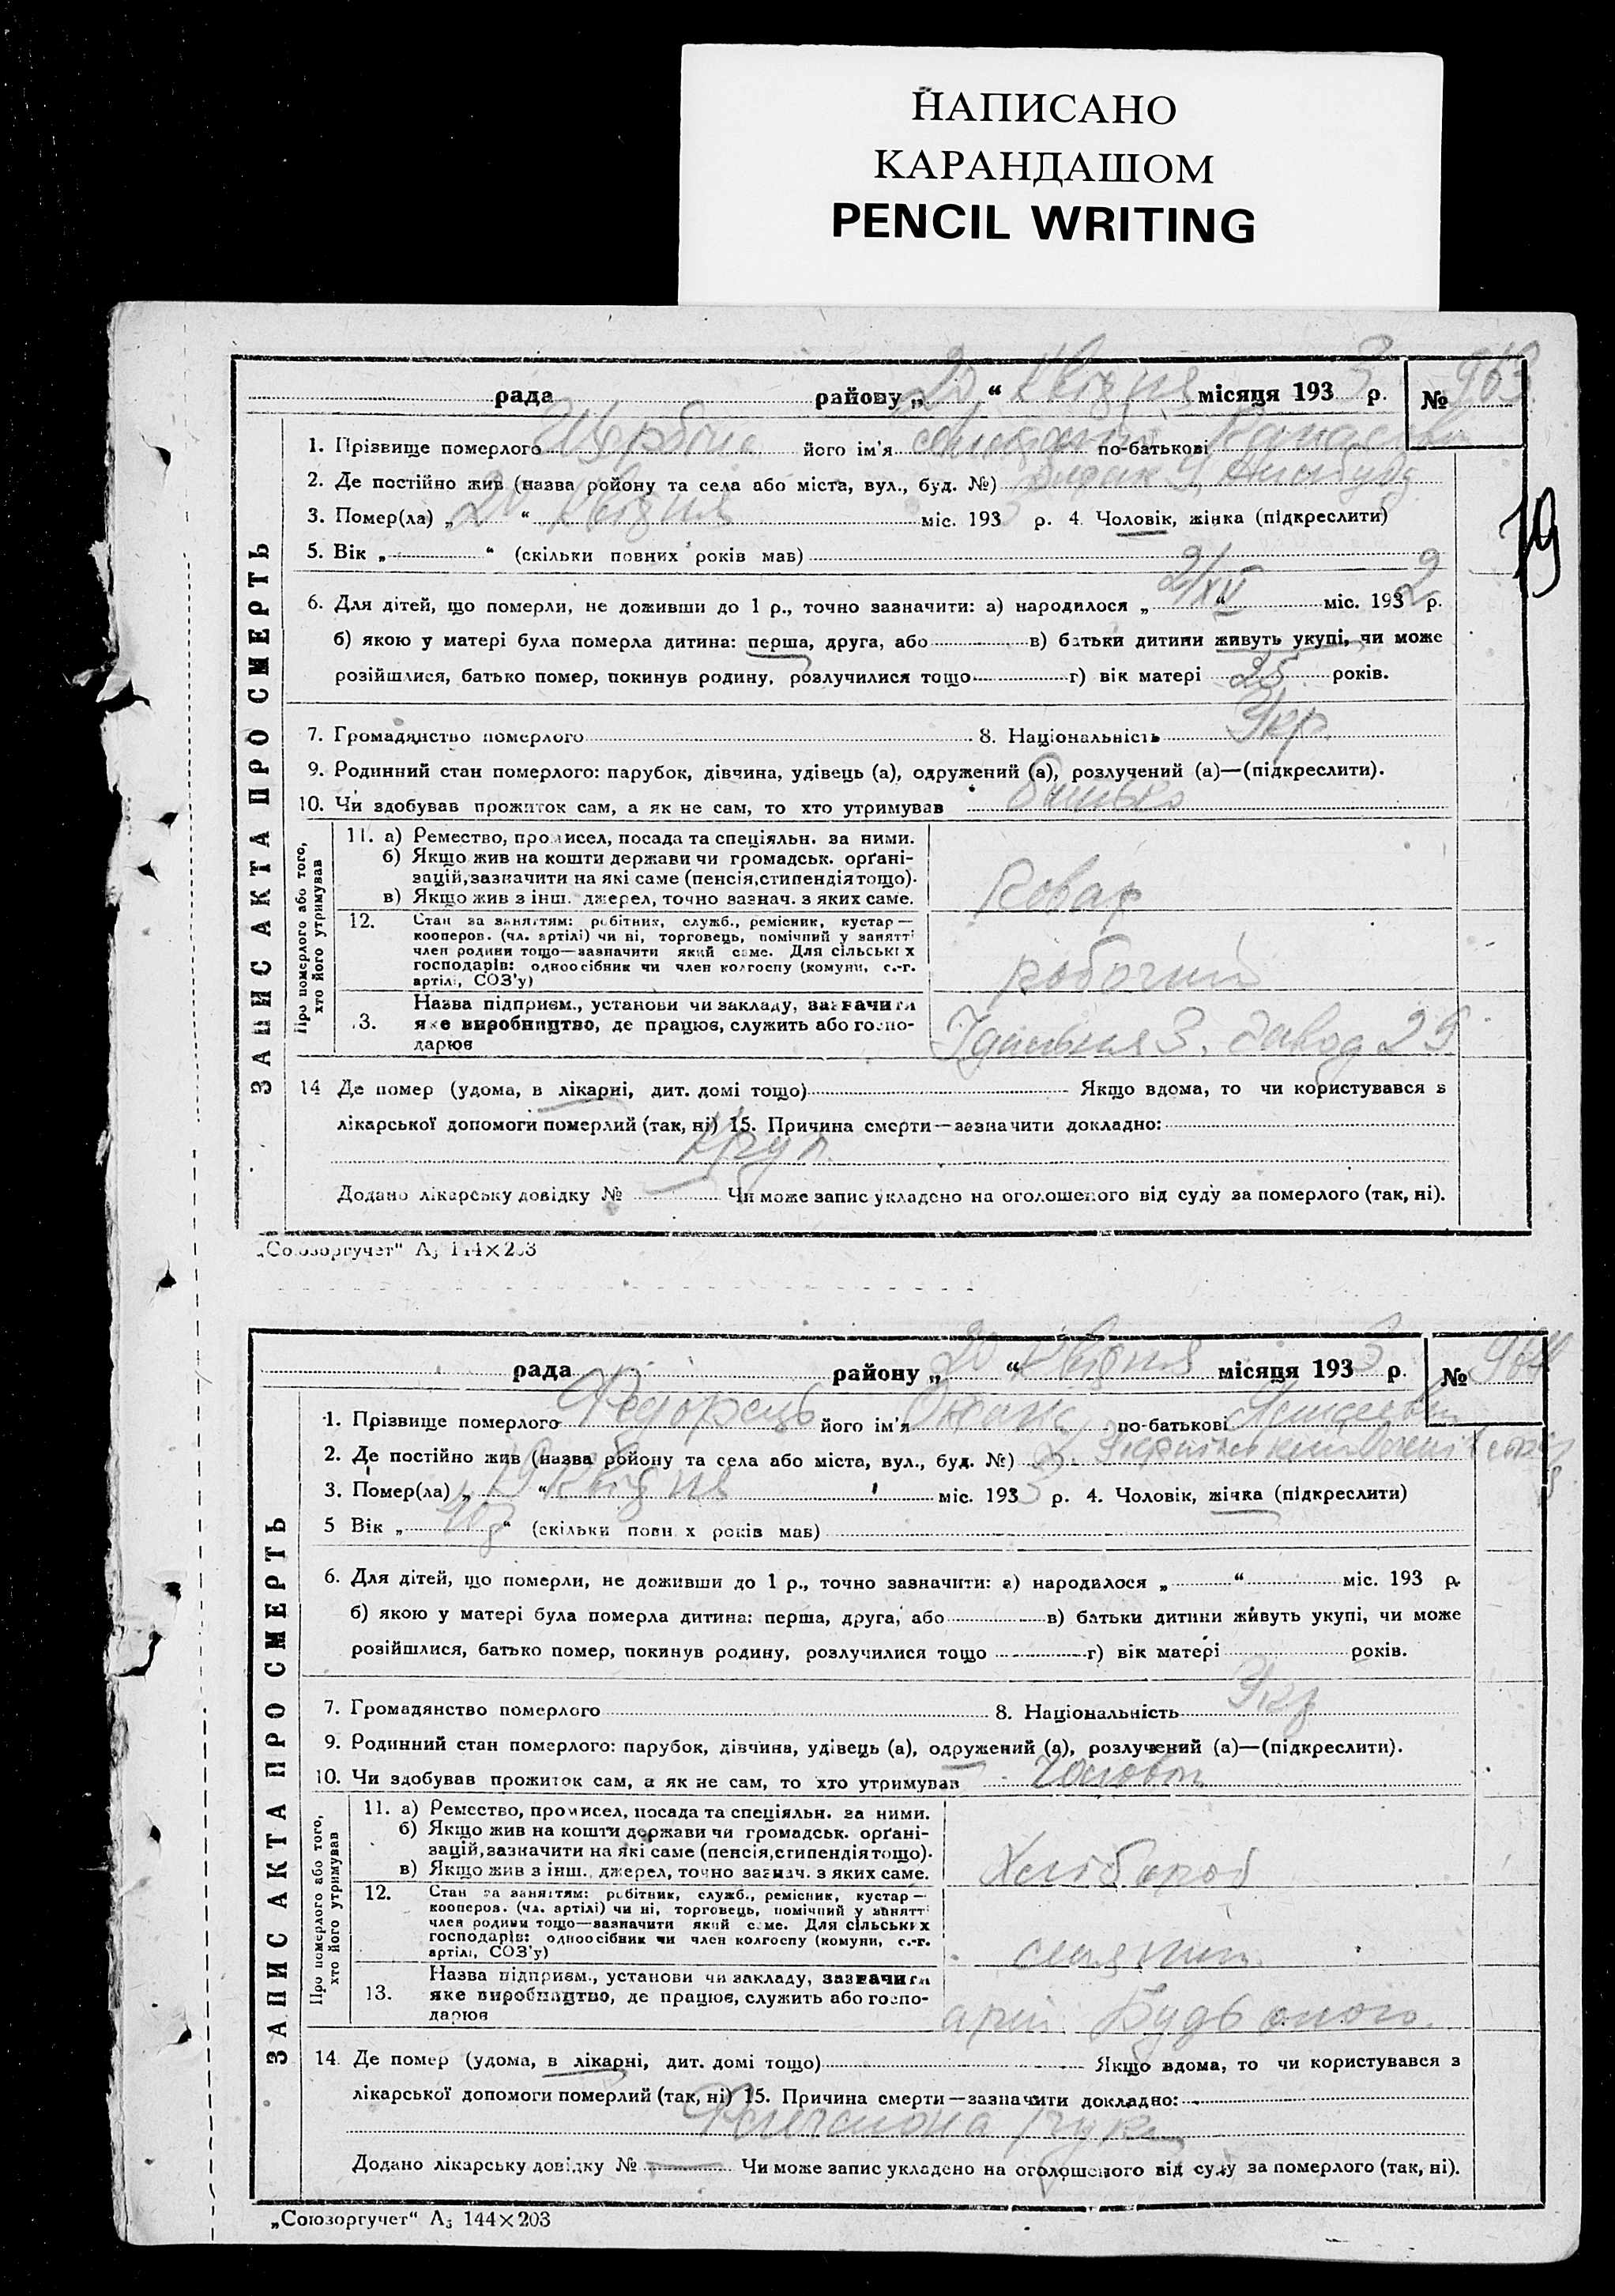 НАПИСАНО
КАРАНДАШОМ
PENCIL WRITING
рада району „20“ Квітня місяця 1933 р. № 963
1. Прізвище померлого його ім'я по-батькові
2. Де постійно жив (назва ройону та села або міста, вул., буд. №)
3. Помер(ла) „20“ Квітня міс. 193 р. 4. Чоловік, жінка (підкреслити)
19
5. Вік „ “ (скільки повних років мав)
6. Для дітей, що померли, не доживши до 1 р., точно зазначити: а) народилося „2/XII“ міс. 1932 р.
б) якою у матері була померла дитина: перша, друга, або в) батьки дитини живуть укупі, чи може
розійшлися, батько помер, покинув родину, розлучилися тощо г) вік матері 25 років.
7. Громадянство померлого 8. Національність Укр.
9. Родинний стан померлого: парубок, дівчина, удівець (а), одружений (а), розлучений (а)—(підкреслити).
10. Чи здобував прожиток сам, а як не сам, то хто утримував батько
ЗАПИС АКТА ПРО СМЕРТЬ
Про померлого або того, хто його утримував
11. а) Ремество, промисел, посада та спеціяльн. за ними.
б) Якщо жив на кошти держави чи громадськ. орґані-
зацій, зазначити на які саме (пенсія, стипендія тощо).
в) Якщо жив з інш. джерел, точно зазнач. з яких саме.
Коваль
12. Стан за заняттям: робітник, служб., ремісник, кустар—
кооперов. (чл. артілі) чи ні, торговець, помічний у занятті
член родини тощо—зазначити який саме. Для сільських
господарів: одноосібник чи член колгоспу (комуни, с.-г.
артілі, СОЗ'у)
робочий
13. Назва підприєм., установи чи закладу, зазначити
яке виробництво, де працює, служить або госпо-
дарює
завод 29
14 Де помер (удома, в лікарні, дит. домі тощо) Якщо вдома, то чи користувався з
лікарської допомоги померлий (так, ні) 15. Причина смерти—зазначити докладно:
Круп.
Додано лікарську довідку № Чи може запис укладено на оголошеного від суду за померлого (так, ні).
„Союзоргучет“ А₅ 144×203
рада району „20“ Квітня місяця 1933 р. № 964
1. Прізвище померлого Федорець його ім'я по-батькові
2. Де постійно жив (назва ройону та села або міста, вул., буд. №)
3. Помер(ла) „19“ Квітня міс. 1933 р. 4. Чоловік, жінка (підкреслити)
5 Вік „ “ (скільки повних років мав)
6. Для дітей, що померли, не доживши до 1 р., точно зазначити: а) народилося „ “ міс. 193 р.
б) якою у матері була померла дитина: перша, друга, або в) батьки дитини живуть укупі, чи може
розійшлися, батько помер, покинув родину, розлучилися тощо г) вік матері років.
7. Громадянство померлого 8. Національність Укр
9. Родинний стан померлого: парубок, дівчина, удівець (а), одружений (а), розлучений (а)—(підкреслити).
10. Чи здобував прожиток сам, а як не сам, то хто утримував Чоловік
ЗАПИС АКТА ПРО СМЕРТЬ
Про померлого або того, хто його утримував
11. а) Ремество, промисел, посада та спеціяльн. за ними.
б) Якщо жив на кошти держави чи громадськ. орґані-
зацій, зазначити на які саме (пенсія, стипендія тощо).
в) Якщо жив з інш. джерел, точно зазнач. з яких саме.
Хлібороб
12. Стан за заняттям: робітник, служб., ремісник, кустар—
кооперов. (чл. артілі) чи ні, торговець, помічний у занятті
член родини тощо—зазначити який саме. Для сільських
господарів: одноосібник чи член колгоспу (комуни, с.-г.
артілі, СОЗ'у)
селянин
13. Назва підприєм., установи чи закладу, зазначити
яке виробництво, де працює, служить або госпо-
дарює
арт. Будьоного
14. Де помер (удома, в лікарні, дит. домі тощо) Якщо вдома, то чи користувався з
лікарської допомоги померлий (так, ні) 15. Причина смерти—зазначити докладно:
Флегмона руки
Додано лікарську довідку № — Чи може запис укладено на оголошеного від суду за померлого (так, ні).
„Союзоргучет“ А₅ 144×203